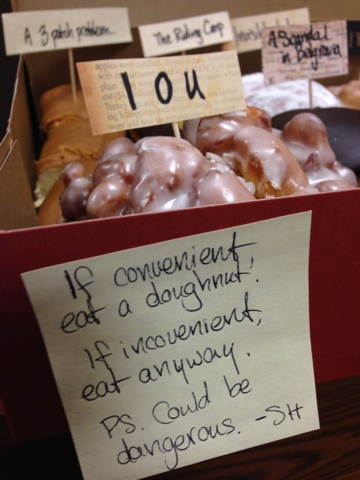 A 3 patch problem...
The Riding Crop
A Scandal
in Belgravia
I O U
If convenient
eat a doughnut!
If incovenient,
eat anyway.
PS. Could be
dangerous. -SH